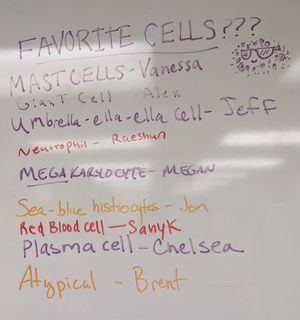 FAVORITE CELLS???
MAST CELLS - Vanessa
Giant Cell - Alex
Umbrella-ella-ella cell - Jeff
Neutrophil - Raeshun
MEGAKARYOCYTE - MEGAN
Sea-blue histiocytes - Jon
Red Blood cell — SanyK
Plasma cell - Chelsea
Atypical - Brent